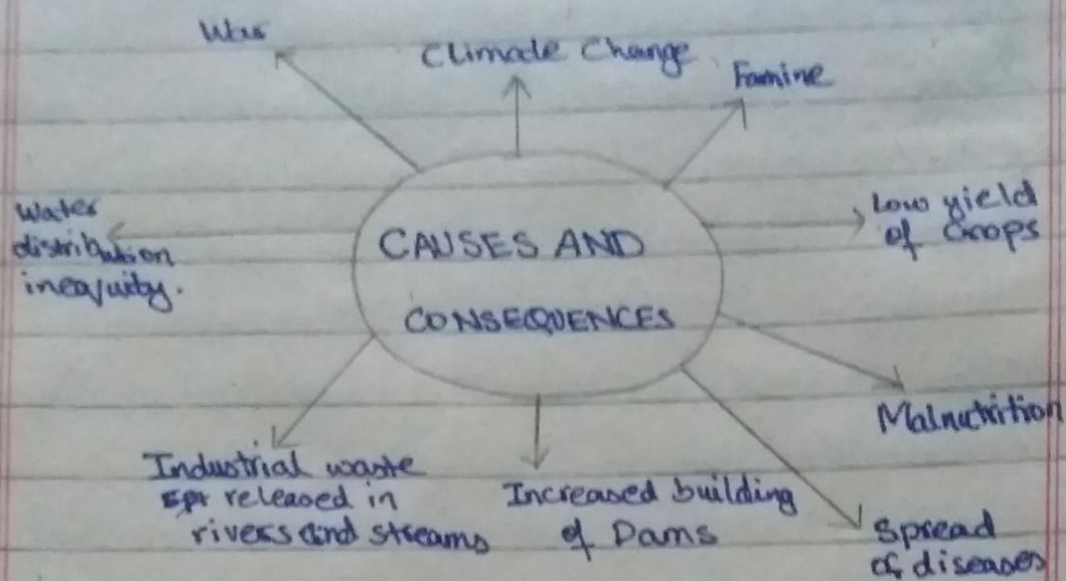 War
Climate Change
Famine
Water
distribution
inequity.
CAUSES AND
CONSEQUENCES
Low yield
of Crops
Malnutrition
Industrial waste
released in
rivers and streams
Increased building
of Dams
Spread
of diseases